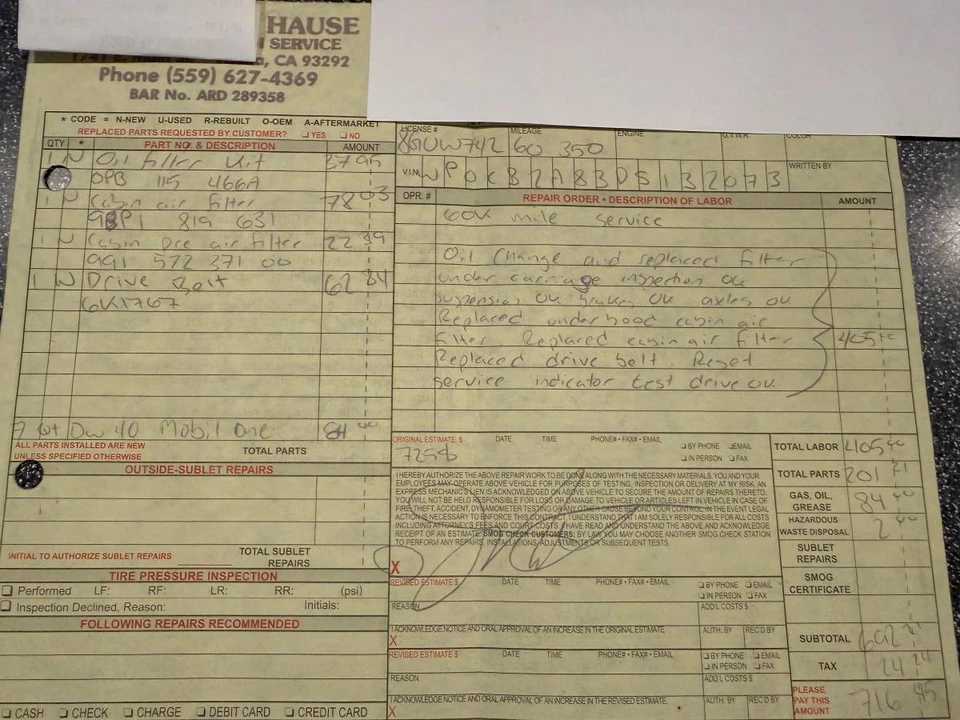 HAUSE
SERVICE
, CA 93292
Phone (559) 627-4369
BAR No. ARD 289358
* CODE = N-NEW U-USED R-REBUILT O-OEM A-AFTERMARKET
REPLACED PARTS REQUESTED BY CUSTOMER? ❑ YES ❑ NO
QTY * PART NO. & DESCRIPTION AMOUNT
1 N Oil filter kit 37 95
OPB 115 466A
1 N Cabin air filter 78 03
9BP1 819 631
1 N Cabin pre air filter 22 39
991 572 371 00
1 N Drive Belt 62 84
6K1767
7 qt 0w 40 Mobil One 84 00
ALL PARTS INSTALLED ARE NEW
UNLESS SPECIFIED OTHERWISE
TOTAL PARTS
OUTSIDE-SUBLET REPAIRS
INITIAL TO AUTHORIZE SUBLET REPAIRS
TOTAL SUBLET
REPAIRS
TIRE PRESSURE INSPECTION
❑ Performed LF: RF: LR: RR: (psi)
❑ Inspection Declined, Reason: Initials:
FOLLOWING REPAIRS RECOMMENDED
❑ CASH ❑ CHECK ❑ CHARGE ❑ DEBIT CARD ❑ CREDIT CARD
LICENSE # MILEAGE ENGINE COLOR
8GUW742 60 350
V.I.N. WP0CB2A83DS132073 WRITTEN BY
OPR. # REPAIR ORDER • DESCRIPTION OF LABOR AMOUNT
60K mile service
Oil change and replaced filter
under carriage inspection ok
suspension ok brakes ok axles ok
Replaced underhood cabin air
filter Replaced cabin air filter 405 00
Replaced drive belt. Reset
service indicator test drive ok
ORIGINAL ESTIMATE $ DATE TIME PHONE# • FAX# • EMAIL
❑ BY PHONE ❑ EMAIL
❑ IN PERSON ❑ FAX
I HEREBY AUTHORIZE THE ABOVE REPAIR WORK TO BE DONE ALONG WITH THE NECESSARY MATERIALS. YOU AND YOUR
EMPLOYEES MAY OPERATE ABOVE VEHICLE FOR PURPOSES OF TESTING, INSPECTION OR DELIVERY AT MY RISK. AN
EXPRESS MECHANIC'S LIEN IS ACKNOWLEDGED ON ABOVE VEHICLE TO SECURE THE AMOUNT OF REPAIRS THERETO.
YOU WILL NOT BE HELD RESPONSIBLE FOR LOSS OR DAMAGE TO VEHICLE OR ARTICLES LEFT IN VEHICLE IN CASE OF
FIRE, THEFT, ACCIDENT, DYNAMOMETER TESTING OR ANY OTHER CAUSE BEYOND YOUR CONTROL. IN THE EVENT LEGAL
ACTION IS NECESSARY TO ENFORCE THIS CONTRACT, I UNDERSTAND THAT I AM SOLELY RESPONSIBLE FOR ALL COSTS
INCLUDING ATTORNEY'S FEES AND COURT COSTS. I HAVE READ AND UNDERSTAND THE ABOVE AND ACKNOWLEDGE
RECEIPT OF AN ESTIMATE. SMOG CHECK CUSTOMERS: BY LAW YOU MAY CHOOSE ANOTHER SMOG CHECK STATION
TO PERFORM ANY REPAIRS, INSTALLATIONS, ADJUSTMENTS OR SUBSEQUENT TESTS.
X
REVISED ESTIMATE $ DATE TIME PHONE# • FAX# • EMAIL
❑ BY PHONE ❑ EMAIL
❑ IN PERSON ❑ FAX
REASON ADD'L COSTS $
I ACKNOWLEDGE NOTICE AND ORAL APPROVAL OF AN INCREASE IN THE ORIGINAL ESTIMATE. AUTH. BY REC'D BY
X
REVISED ESTIMATE $ DATE TIME PHONE# • FAX# • EMAIL
❑ BY PHONE ❑ EMAIL
❑ IN PERSON ❑ FAX
REASON ADD'L COSTS $
I ACKNOWLEDGE NOTICE AND ORAL APPROVAL OF AN INCREASE IN THE REVISED ESTIMATE. AUTH. BY REC'D BY
X
TOTAL LABOR 405 00
TOTAL PARTS 201 21
GAS, OIL,
GREASE 84 00
HAZARDOUS
WASTE DISPOSAL 2 00
SUBLET
REPAIRS
SMOG
CERTIFICATE
SUBTOTAL 692 21
TAX 24 24
PLEASE
PAY THIS
AMOUNT 716 45